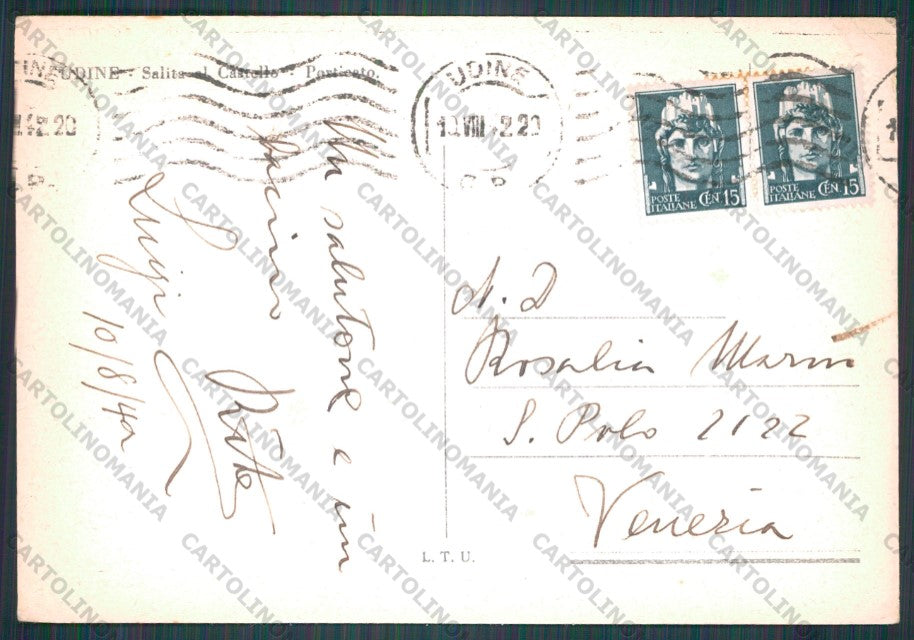 UDINE - Salita al Castello - Porticato.
UDINE
10 VIII 42 20
POSTE ITALIANE CEN 15
POSTE ITALIANE CEN 15
Un salutone e un
bacino
Luigi
10/8/42
N. D
Rosalia Marin
S. Polo 2122
Venezia
L. T. U.
CARTOLINOMANIA